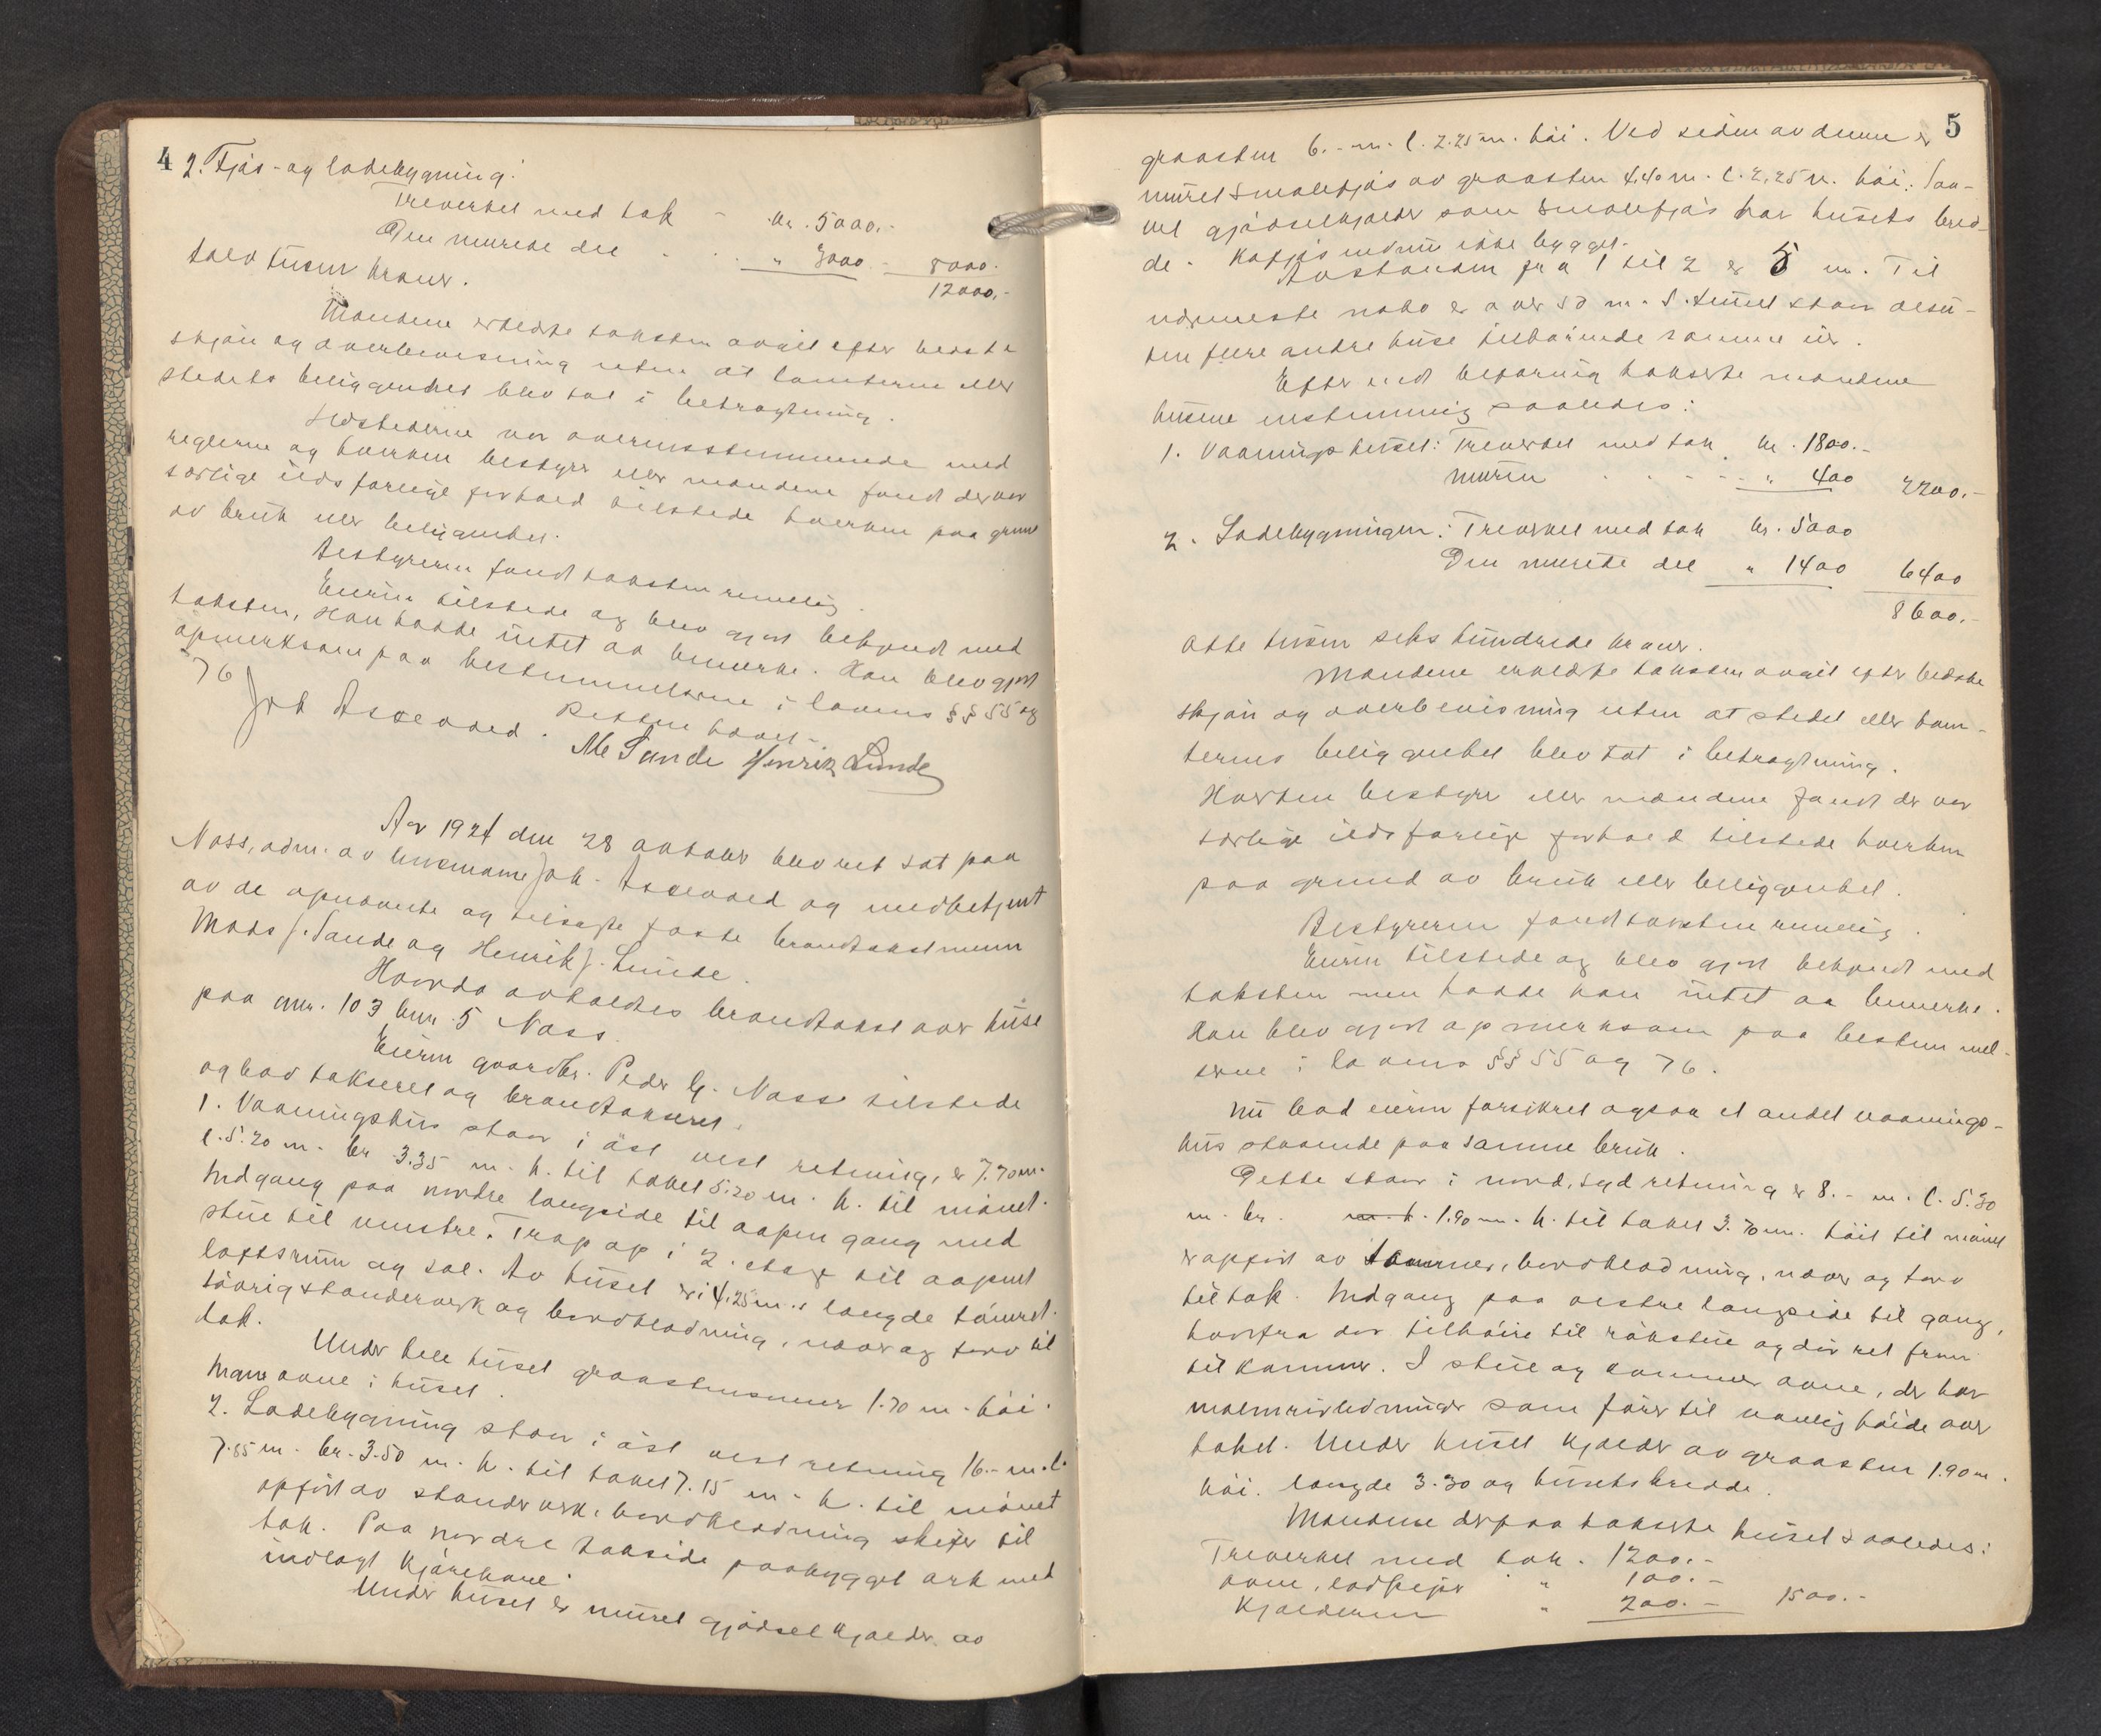 4
2. Fjøs- og ladebygning:
Treverket med tak - kr. 5000.-
Den murede del . . . " 3000.- 8000.-
12000.-
tolv tusen kroner.
Mændene erklærte taksten avgit efter bedste
skjøn og overbevisning uten at tomterne eller
stedets beliggenhet blev tat i betragtning.
Ildstederne var overensstemmende med
reglerne og hverken bestyrer eller mændene fandt der var
særlige ildsfarlige forhold tilstede hverken paa grund
av bruk eller beliggenhet.
Bestyreren fandt taksten rimelig.
Eieren tilstede og blev gjort bekjendt med
taksten, Han hadde intet aa bemerke. Han blev gjort
opmerksom paa bestemmelserne i lovens §§ 55 og
76
Retten hævet.
Joh Askevold. M Sunde Henrik Lunde
Aar 1924 den 28 oktober blev ret sat paa
Noss, adm. av lensmann Joh. Askevold og medbetjent
av de opnævnte og tilsagte faste brandtakstmenn
Mads J. Sunde og Henrik J. Lunde.
Hvorda avholdtes brandtakst over huse
paa gnr. 103 bnr. 5 Noss.
Eieren gaardbr. Peder G. Noss tilstede
og bad takseret og brandtakseret.
1. Vaaningshus staar i øst vest retning, er 7.70 m.
l. 5.20 m. br 3.35 m. h. til taket 5.20 m. h. til mønet.
Indgang paa nordre langside til aapen gang med
stue til venstre. Trap op i 2. etage til aapent
loftsrum og sal. Av huset er i 4.25 m.s længde tømret.
tøvrig standerverk og bordklædning, næver og torv til
tak.
Under hele huset graastensmur 1.70 m. høi.
Ingen ovne i huset.
2. Ladebygning staar i øst vest retning 16.- m. l.
7.85 m. br. 3.50 m. h. til taket 7.15 m. h. til mønet
opført av standerverk, bordklædning skifer til
tak. Paa nordre takside paabygget ark med
indlagt kjørebane.
Under huset er muret gjødselkjælder av
5
graasten 6.- m. l. 2.25 m. høi. Ved siden av denne er
muret smalefjøs av graasten 4.40 m. l. 2.25 m. høi. Saa-
vel gjødselkjælder som smalefjøs har husets bred-
de. Kofjøs endnu ikke bygget.
Avstanden fra 1 til 2 er 5 m. Til
nærmeste nabo er over 50 m. I tunet staar desu-
ten flere andre huse tilhørende samme eier.
Efter endt befaring takserte mændene
husene enstemmig saaledes:
1. Vaaningshuset: Treverket med tak kr. 1800.-
muren . . . . " 400 2200.-
2. Ladebygningen: Treverket med tak kr. 5000
Den murede del " 1400 6400
8600.-
Otte tusen seks hundrede kroner.
Mændene erklærte taksten avgit efter bedste
skjøn og overbevisning uten at stedet eller tom-
ternes beliggenhet blev tat i betragtning.
Hverken bestyrer eller mændene fandt der var
særlige ildsfarlige forhold tilstede hverken
paa grund av bruk eller beliggenhet.
Bestyreren fandt taksten rimelig.
Eieren tilstede og blev gjort bekjendt med
taksten men hadde han intet aa bemerke.
Han blev gjort opmerksom paa bestemmel-
serne i lovens §§ 55 og 76.
Nu bad eieren forsikret ogsaa et andet vaanings-
hus staaende paa samme bruk.
Dette staar i nord, syd retning er 8.- m. l. 5.30
m. br. m. h. 1.90 m. h. til taket 3.70 m. høit til mønet
er opført av tømmer, bordklædning, næver og torv
til tak. Indgang paa vestre langside til gang,
hvorfra dør tilhøire til røkstue og dør ret frem
til kammer. I stue og kammer ovne, der har
malmrørledninger som fører til vanlig høide over
taket. Under huset kjælder av graasten 1.90 m.
høi. længde 3.30 og husets bredde.
Mændene derpaa takserte huset saaledes:
Treverket med tak . 1200.-
ovne, " 100.-
Kjælderen " 200.- 1500.-